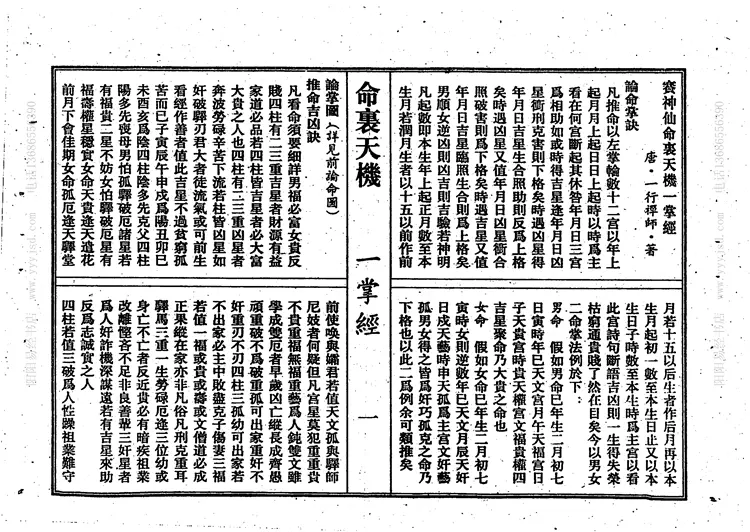 賽神仙命裏天機一掌經
唐·一行禪師·著
論命掌訣
凡推命以左掌輪數十二宮以年上
起月月上起日日上起時以時爲主
看在何宮斷起其休咎年月日三宮
爲相助如或時得吉星逢年月日凶
星衝刑克害則下格矣時遇凶星得
年月日吉星生合照助則反爲上格
矣時遇凶星又值年月日凶星衝合
照破害則爲下格矣時遇吉星又值
年月日吉星臨照生合則爲上格矣
男順女逆凶則凶吉則吉驗若神明
凡起數即本生年上起正月數至本
生月若潤月生者以十五以前作前
月若十五以后生者作后月再以本
生月起初一數至本生日止又以本
生日子時數至本生時爲主宮以看
此宮詩句斷語吉凶則一生得失榮
枯窮通貴賤了然在目矣今以男女
二命掌法例於下：
男命　假如男命巳年生二月初七
日寅時年巳天文宮月午天福宮日
子天貴宮時寅天權宮文福貴權四
吉星聚命乃大貴之命也
女命　假如女命巳年生二月初七
寅時女則逆數年巳天文月辰天奸
日戌天藝時申天孤爲主宮文奸藝
孤男女得之皆爲奸巧孤克之命乃
下格也以此二爲例余可類推矣
命裏天機　一掌經　一
論掌圖(詳見前論命圖)
推命吉凶訣
凡看命須要細詳男福必富女貴反
賤四柱有二三重吉星者財源有益
家道必品若四柱皆吉星者必大富
大貴之人也四柱有二三重凶星者
奔波勞碌辛苦下流若柱皆凶星如
奸破驛刃君大者徒流氣或可前生
看經作善者值此吉星不過貧窮孤
苦而已子寅辰午申戌爲陽丑卯巳
未酉亥爲陰四柱陰多先克父四柱
陽多先喪母男怕孤驛破厄諸星若
有福貴二星不妨女怕驛破厄星有
福壽權星穩實女命天貴逢天遺花
前月下會佳期女命孤厄逢天驛堂
前使喚與孀君若值天文孤與驛師
尼妓者何疑但凡宮星莫犯重重貴
不貴重福無福重藝爲人鈍雙文雖
學成雙厄者早歲凶亡縱長成齊愚
頑重破不爲破重孤可出家重奸不
奸重刃不刃四柱三孤幼可出家若
不出家必主中敗盡克子傷妻三福
若值一福或貴或壽或文僧道必成
正果縱在家亦非凡俗凡刑克重耳
驛馬三重一生勞碌厄逢三位幼或
身亡不亡者反近貴必有暗疾祖業
改離慳吝不足非良善輩三奸星者
爲人奸詐機深謀遠若有吉星來助
反爲志誠實之人
四柱若值三破爲人性躁祖業難守